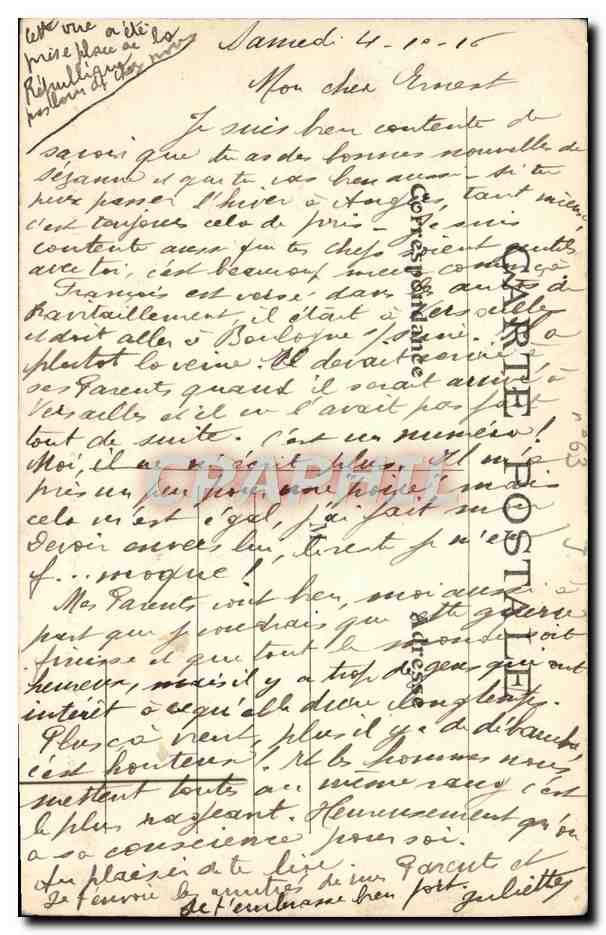 Cette vue a été
prise place de la
République
pas loin de chez nous
Samedi 4-10-16
Mon cher Ernest
Je suis bien contente de
savoir que tu as des bonnes nouvelles de
Sézanne et que tu vas bien aussi - si tu
peux passer l'hiver à Angers, tant mieux,
c'est toujours cela de pris - Je suis
contente aussi que tes chefs soient gentils
avec toi, c'est beaucoup mieux comme çà
François est versé dans les autos de
Ravitaillement, il était à Versailles
et doit aller à Boulogne
plutôt la veine. Il devait
ses Parents quand il serait arrivé à
Versailles et il ne l'avait pas fait
tout de suite. c'est un numéro!
Moi, il ne m'écrit plus. Il m'a
pris un peu pour une poire, mais
cela m'est égal, j'ai fait mon
Devoir envers lui, le reste je m'en
f... moque!
Mes Parents vont bien, moi aussi à
part que je voudrais que cette guerre
finisse et que tout le monde soit
heureux, mais il y a trop de gens qui ont
intérêt à ce qu'elle dure longtemps.
Plus çà vient, plus il y a de débauche,
c'est honteux! Et les hommes nous
mettent toutes au même rang c'est
le plus rageant. Heureusement qu'on
a sa conscience pour soi.
Au plaisir de te lire.
Je t'envoie les amitiés de mes Parents et
je t'embrasse bien fort.
Juliette
CARTE POSTALE
Correspondance
Adresse
n° 63
CPAPHIL